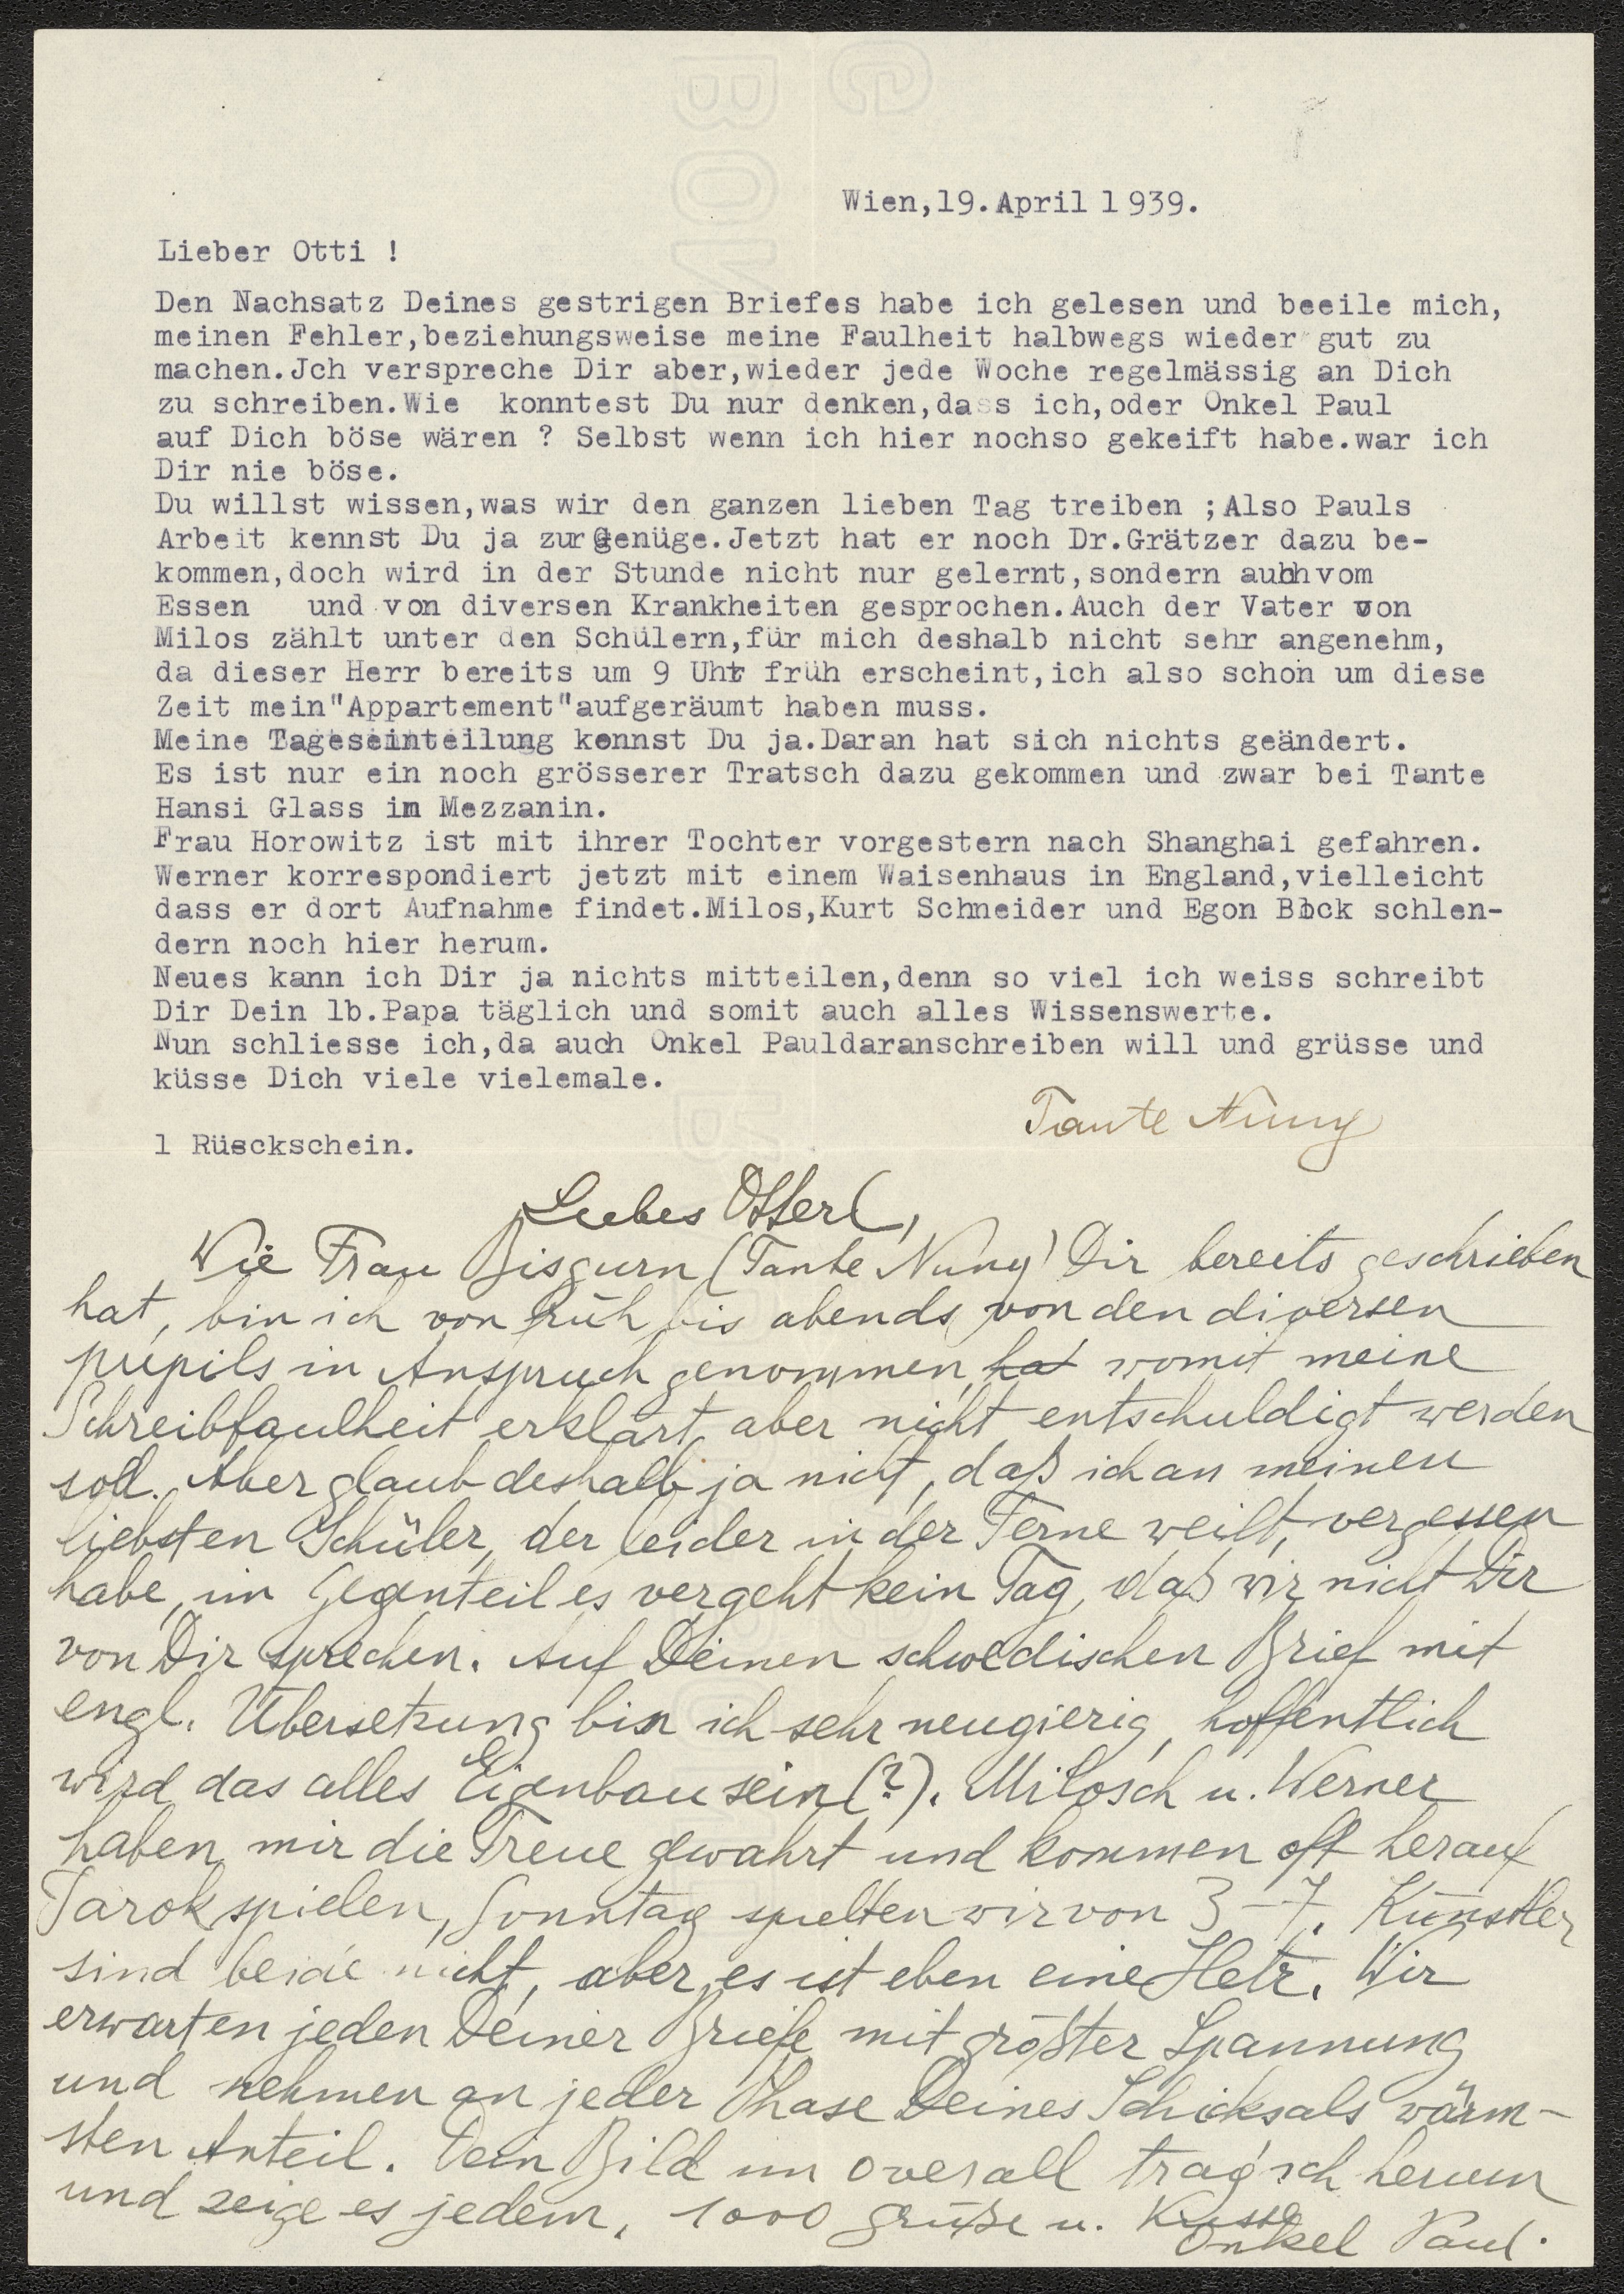 Wien,19.April 1939.
Lieber Otti !
Den Nachsatz Deines gestrigen Briefes habe ich gelesen und beeile mich,
meinen Fehler,beziehungsweise meine Faulheit halbwegs wieder gut zu
machen.Jch verspreche Dir aber,wieder jede Woche regelmässig an Dich
zu schreiben.Wie konntest Du nur denken,dass ich,oder Onkel Paul
auf Dich böse wären ? Selbst wenn ich hier nochso gekeift habe.war ich
Dir nie böse.
Du willst wissen,was wir den ganzen lieben Tag treiben ;Also Pauls
Arbeit kennst Du ja zur Genüge.Jetzt hat er noch Dr.Grätzer dazu be-
kommen,doch wird in der Stunde nicht nur gelernt,sondern auch vom
Essen und von diversen Krankheiten gesprochen.Auch der Vater von
Milos zählt unter den Schülern,für mich deshalb nicht sehr angenehm,
da dieser Herr bereits um 9 Uhr früh erscheint,ich also schon um diese
Zeit mein"Appartement"aufgeräumt haben muss.
Meine Tageseinteilung kennst Du ja.Daran hat sich nichts geändert.
Es ist nur ein noch grösserer Tratsch dazu gekommen und zwar bei Tante
Hansi Glass im Mezzanin.
Frau Horowitz ist mit ihrer Tochter vorgestern nach Shanghai gefahren.
Werner korrespondiert jetzt mit einem Waisenhaus in England,vielleicht
dass er dort Aufnahme findet.Milos,Kurt Schneider und Egon Bock schlen-
dern noch hier herum.
Neues kann ich Dir ja nichts mitteilen,denn so viel ich weiss schreibt
Dir Dein lb.Papa täglich und somit auch alles Wissenswerte.
Nun schliesse ich,da auch Onkel Pauldaranschreiben will und grüsse und
küsse Dich viele vielemale.
Tante Nuny
1 Rüsckschein.
Liebes Otterl,
Wie Frau Bisgurn (Tante Nuny) Dir bereits geschrieben
hat, bin ich von früh bis abends von den diversen
pupils in Anspruch genommen, hat womit meine
Schreibfaulheit erklärt, aber nicht entschuldigt werden
soll. Aber glaub deshalb ja nicht, daß ich an meinen
liebsten Schüler, der leider in der Ferne weilt, vergessen
habe, im Gegenteil es vergeht kein Tag, daß wir nicht Dir
von Dir sprechen. Auf Deinen schwedischen Brief mit
engl. Übersetzung bin ich sehr neugierig, hoffentlich
wird das alles Eigenbau sein (?). Milosch u. Werner
haben mir die Treue gewahrt und kommen oft herauf
Tarok spielen, Sonntag spielten wir von 3-7. Künstler
sind beide nicht, aber es ist eben eine Hetz. Wir
erwarten jeden Deiner Briefe mit größter Spannung
und nehmen an jeder Phase Deines Schicksals wärm-
sten Anteil. Dein Bild im Overall trag' ich herum
und zeige es jedem. 1000 Grüße u. Küsse
Onkel Paul.